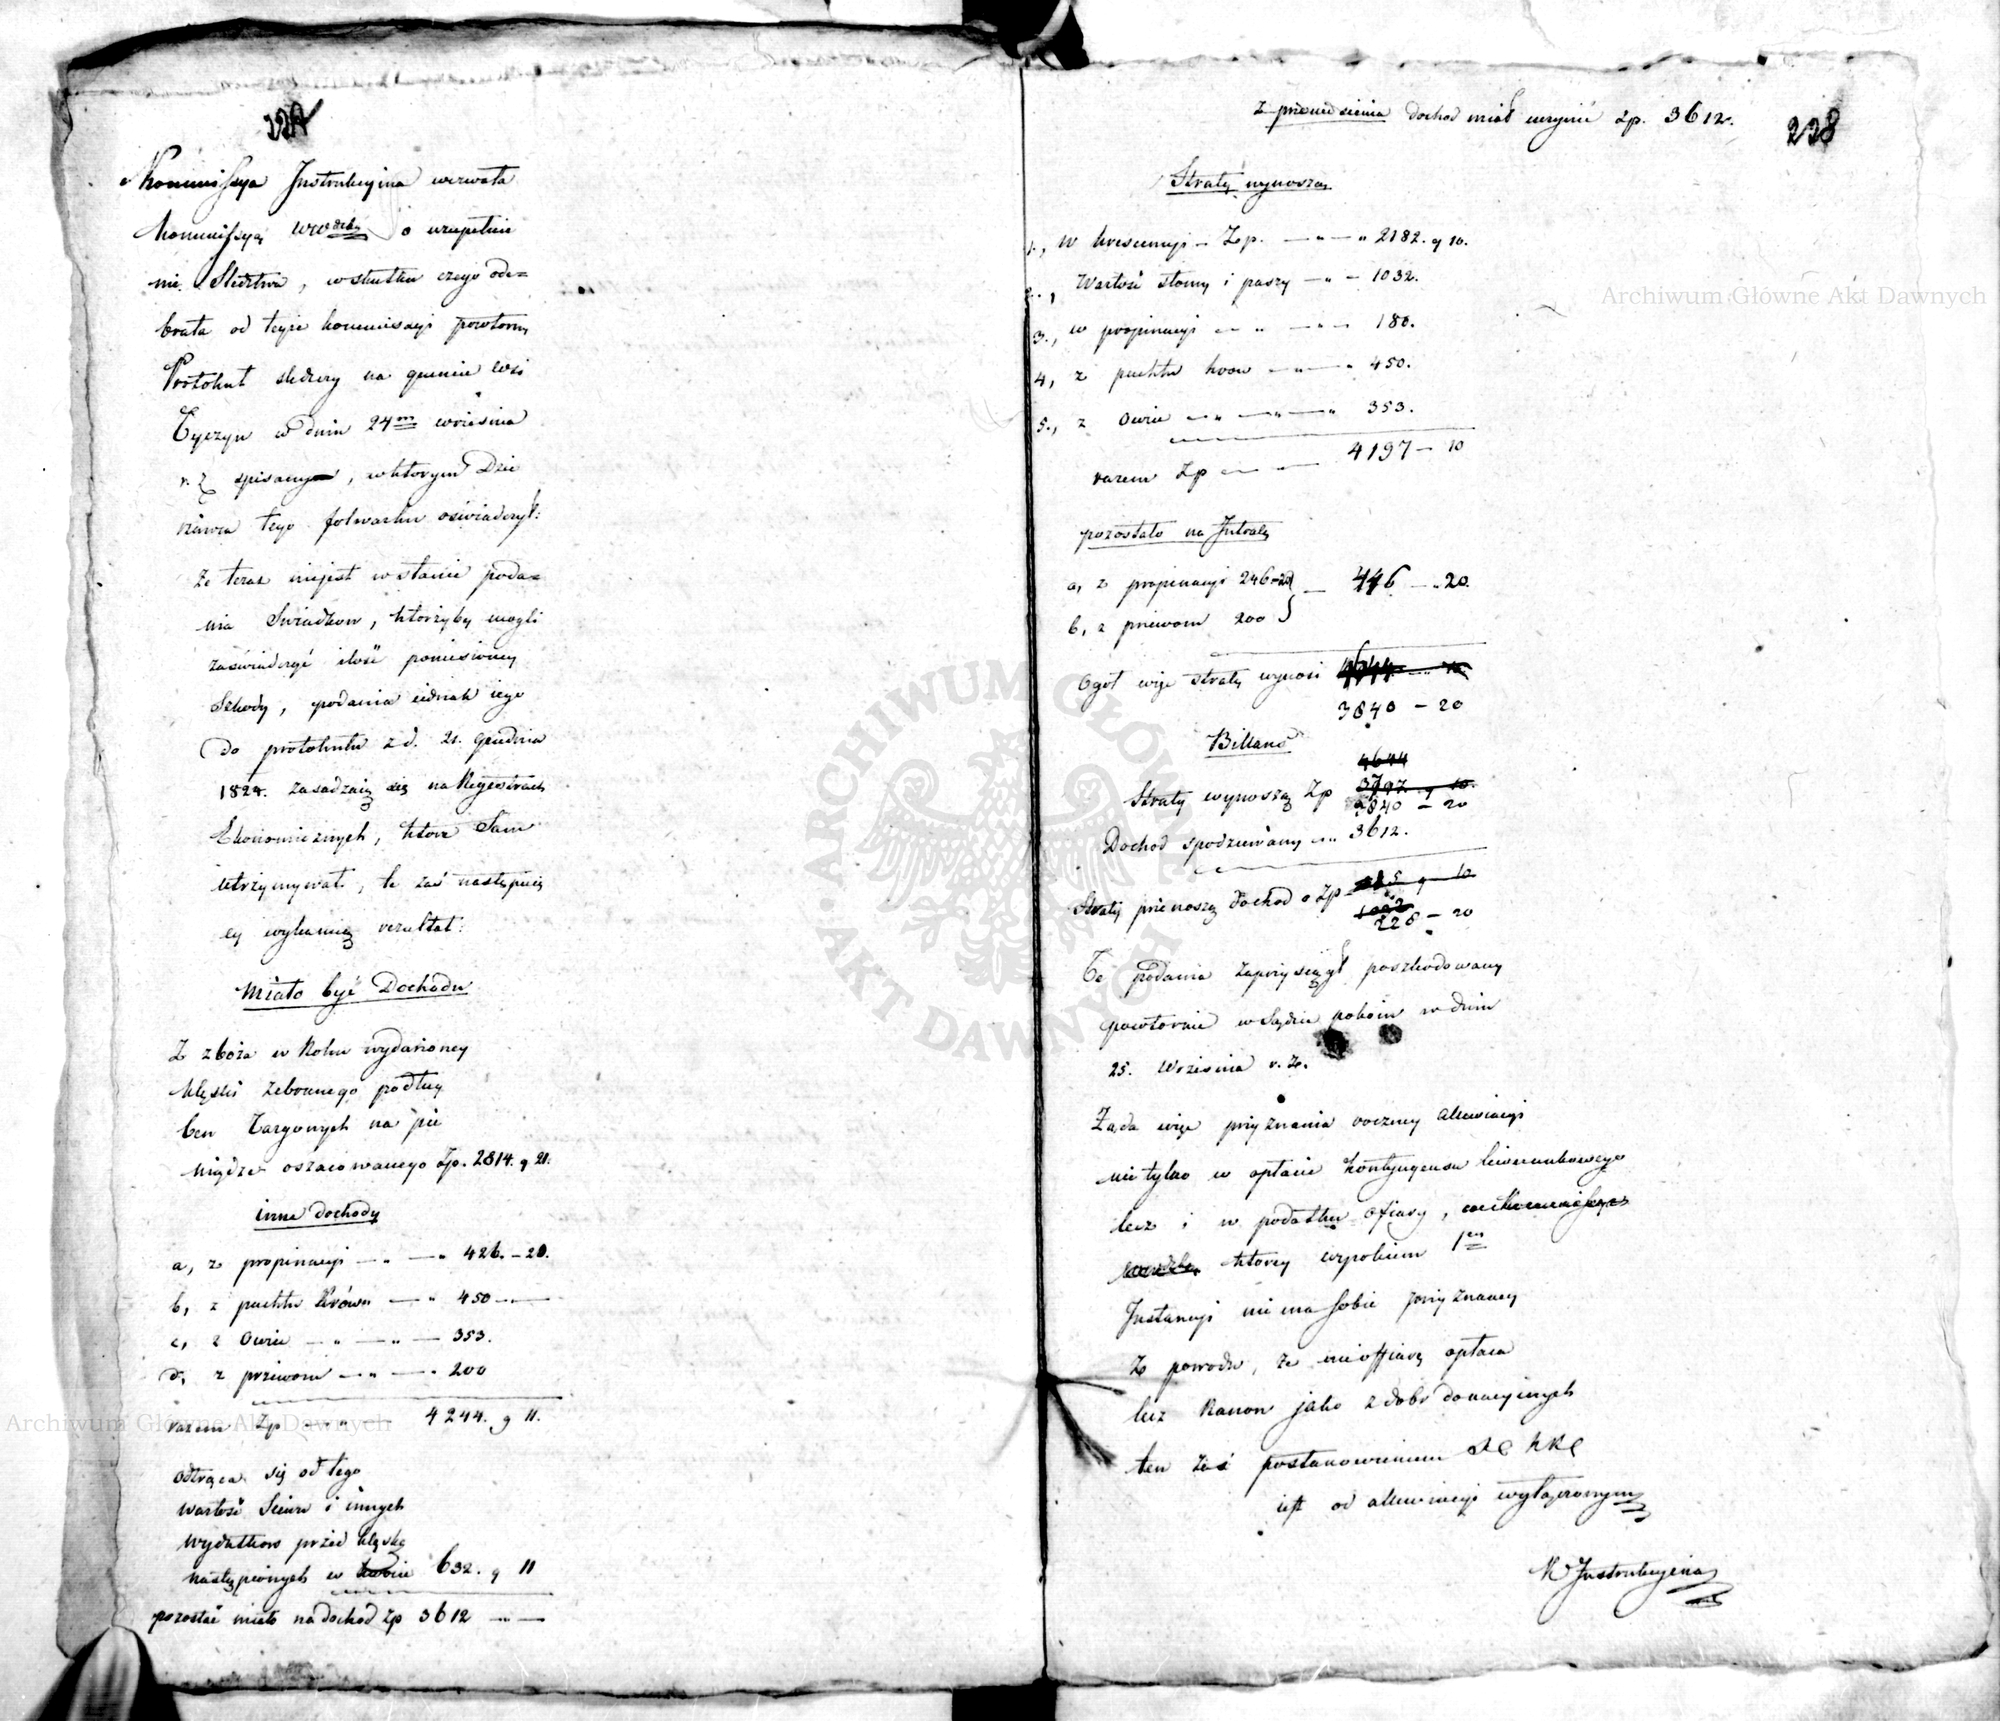 Kommissya Instrukcyina wezwała
Kommissyą Wwdzką o uzupełnie
nie Śledztwa, w skutku czego ode-
brała od teyże kommissyi powtorny
Protokuł śledczy na gruncie wsi
Tyczyn w dniu 24m września
r. z spisany, w ktorym Dzie
rżawca tego folwarku oświadczył:
że teraz niejest w stanie poda-
nia Swiadkow, ktorzyby mogli
zaświadczyć ilość poniesioney
Szkody, podania iednak iego
do protokułu z d. 21. Grudnia
1824. zasadzaią się na Regestrach
Ekonomicznych, ktore Sam
utrzymywał, te zaś następuią
cy wykazuią rezultat:
Miało być Dochodu
Z zboża w Roku wydarzoney
klęski zebranego podług
Cen Targowych na pie
niądze oszacowanego Zp. 2814. g 21.
inne dochody
a, z propinacyi — " — " 426. - 20.
b, z pachtu krów — " 450 — " —
c, z Owiec — " — " — 353.
d, z przewozu — " — . 200
razem Zp — " — 4244. g 11.
odtrąca się od tego
wartość Siewu i innych
wydatkow przed klęską
nastąpionych w 632. g 11
pozostać miało na dochod Zp 3612 — " —
228
Z przeniesienia dochod miał czynić Zp. 3612.
Straty wynoszą
1., W krescencyi - Zp. — " — " 2182. g 10.
2., Wartość słomy i paszy — " — 1032.
3., w propinacyi — " — " — 180.
4, z pachtu krow — " — " 450.
5., z Owiec — " — " — " 353.
razem Zp — — 4197 — 10
pozostało na Intratę
a, z propinacyi 246-20 — 446 — " 20.
b, z przewozu 200
Ogół więc straty wynosi
3840 — 20
Billans
4644
3797. g 10.
Straty wynoszą Zp 3840 — 20
Dochod spodziewany — " 3612.
Straty przenoszą dochod o Zp
228 — 20
Te podania zaprzysiągł poszkodowany
powtornie w Sądzie pokoiu w dniu
25. Września r. z.
Żąda więc przyznania roczney allewiacyi
nie tylko w opłacie kontyngensu liwerunkowego
lecz i w podatku ofiary,
ktorey wyrokiem 1ey
Instancyi nie ma sobie przyznaney
Z powodu, że nie offiarę opłaca
lecz Kanon jako z dobr donacyinych
ten zaś postanowieniem
iest od allewiacyi wyłączonym
K Instrukcyina
Archiwum Główne Akt Dawnych
Archiwum Główne Akt Dawnych
ARCHIWUM GŁÓWNE • AKT DAWNYCH •